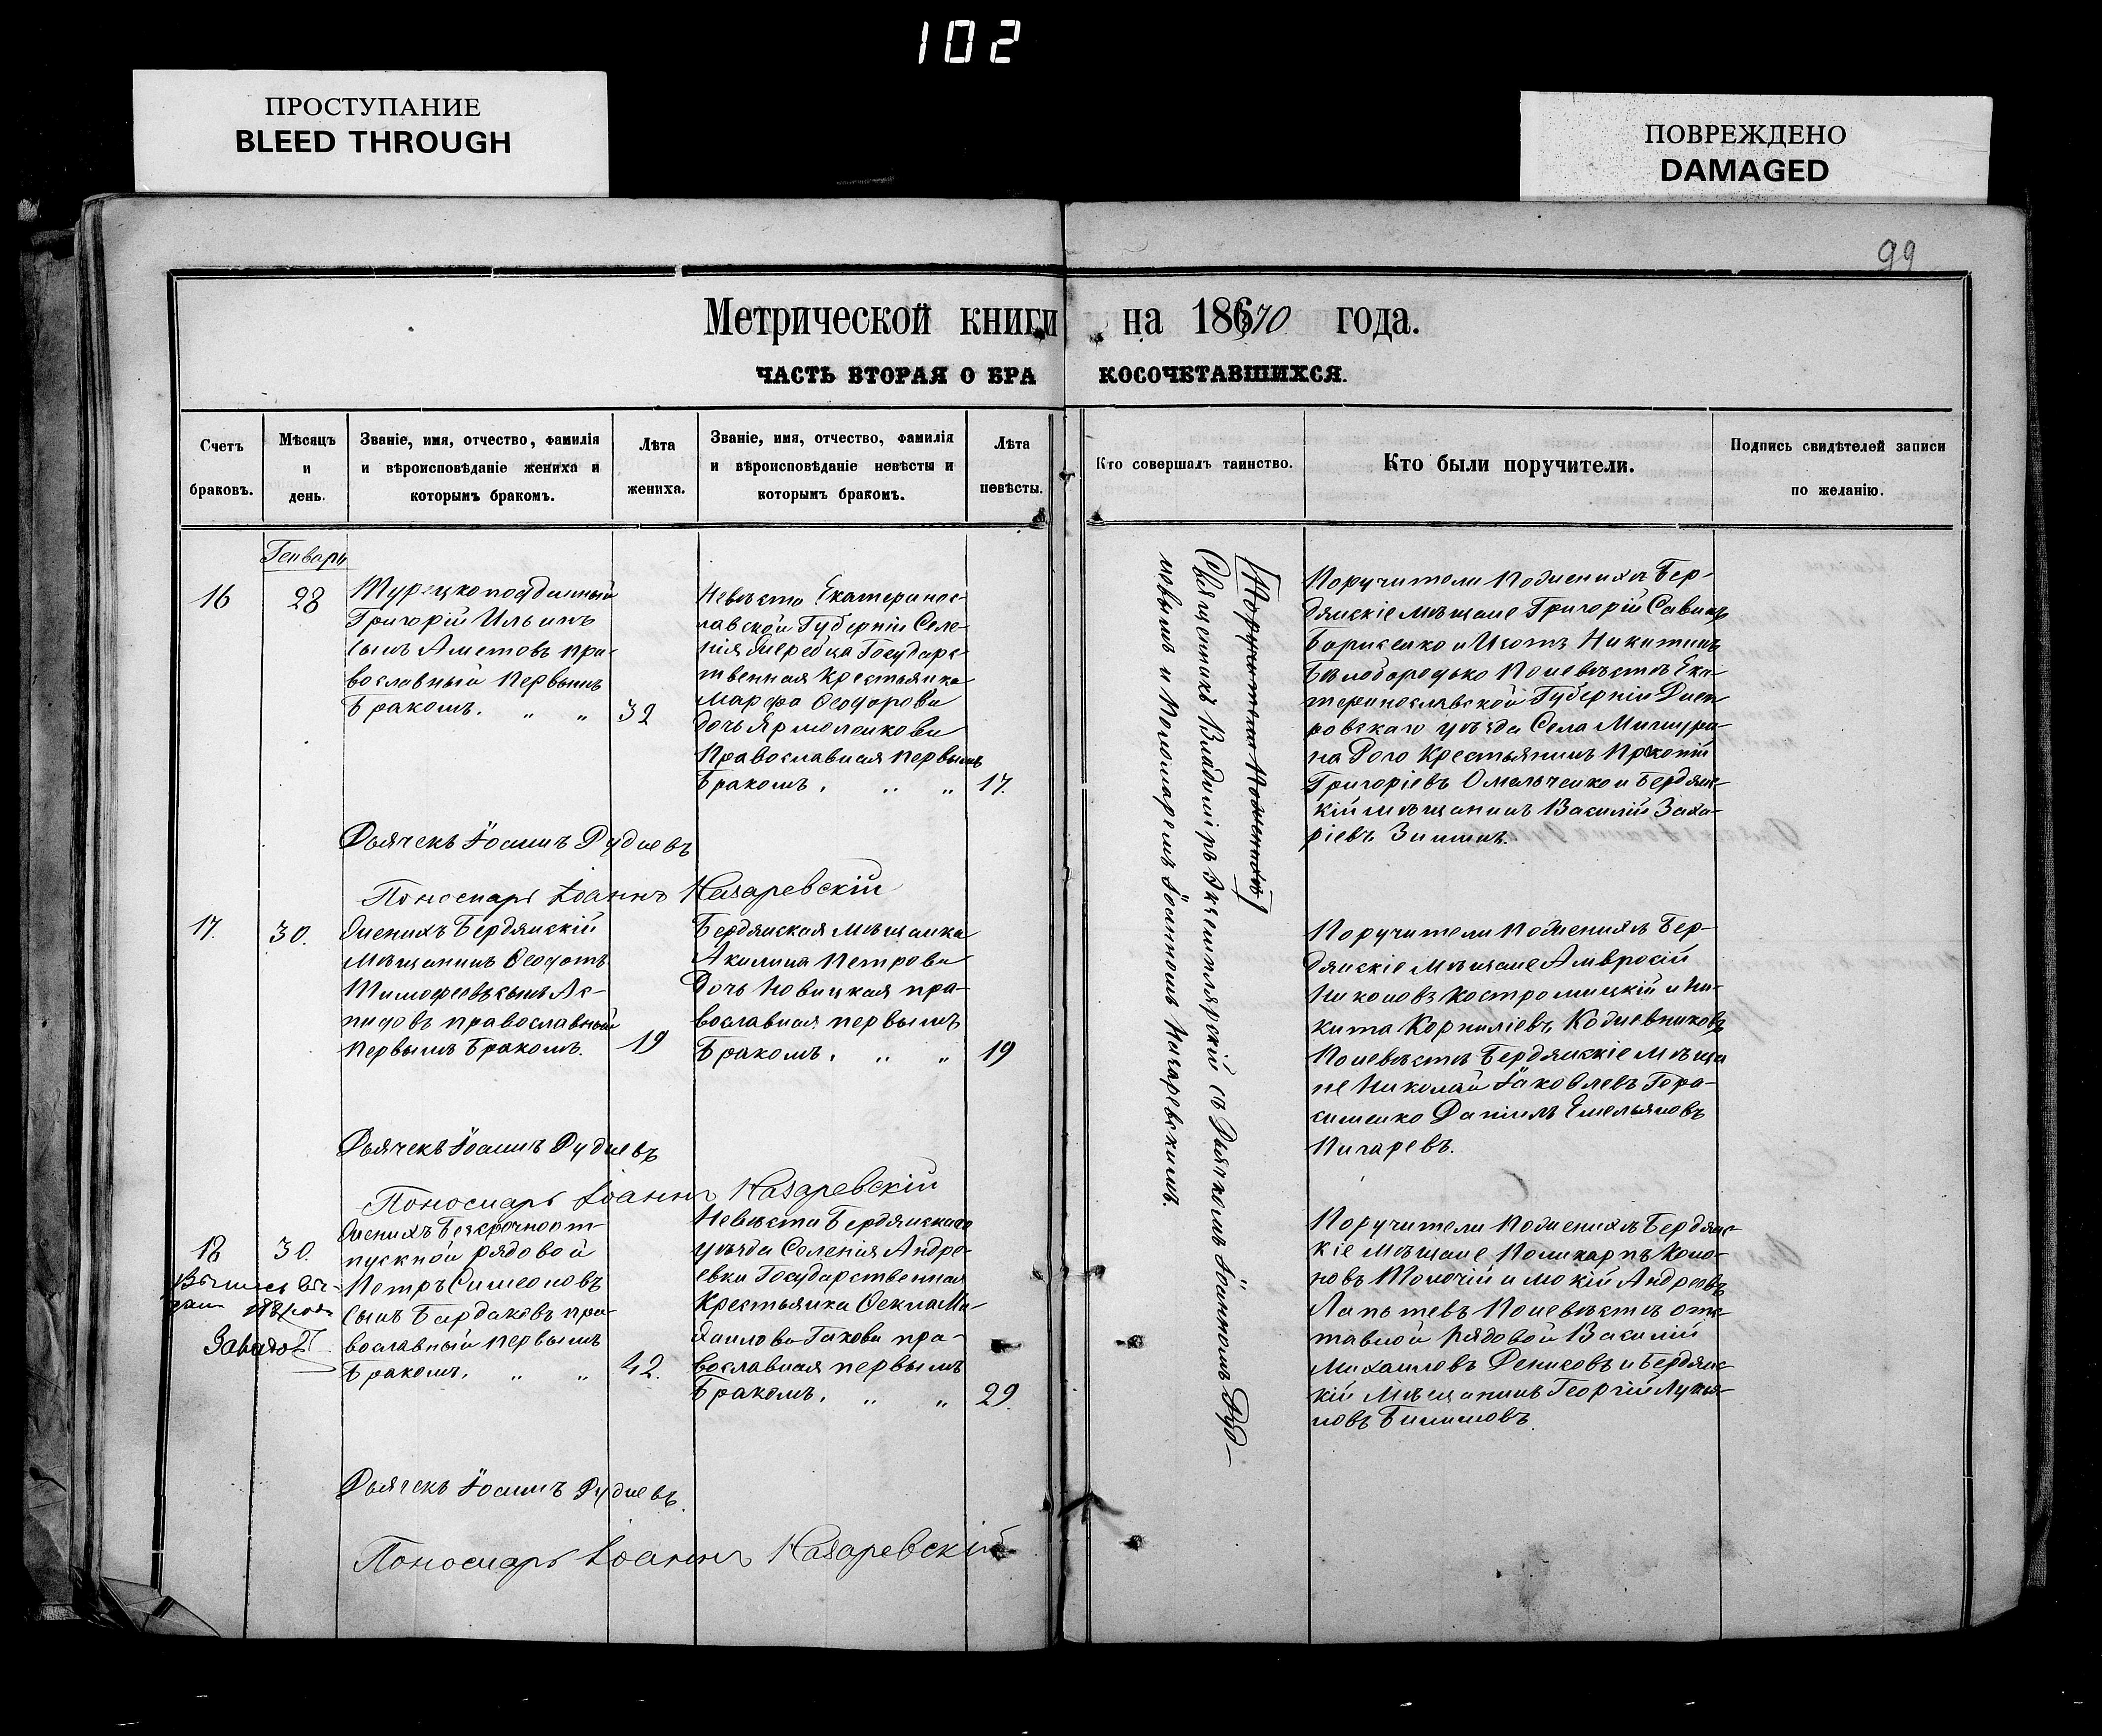 102
ПРОСТУПАНИЕ
BLEED THROUGH
ПОВРЕЖДЕНО
DAMAGED
99
Метрической книги на 1870 года.
ЧАСТЬ ВТОРАЯ О БРАКОСОЧЕТАВШИХСЯ.
Счетъ браковъ.
Мѣсяцъ и день.
Званіе, имя, отчество, фамилія
и вѣроисповѣданіе жениха и
которымъ бракомъ.
Лѣта жениха.
Званіе, имя, отчество, фамилія
и вѣроисповѣданіе невѣсты и
которымъ бракомъ.
Лѣта невѣсты.
Кто совершалъ таинство.
Кто были поручители.
Подпись свидѣтелей записи
по желанію.
Генварь
16
28
Турецкоподданный
Григорій Ильинъ
сынъ Аметовъ пра-
вославный первымъ
бракомъ. „ „
32
Невѣста Екатеринос-
лавской Губерніи Селе-
нія Государс-
твенная Крестьянка
Марфа Ѳеодорова
дочь Ярмоленкова
Православная первымъ
бракомъ. „ „
17.
Поручители по женихѣ Бер-
дянскіе мѣщане Григорій Савинъ
Борисенко и Изотъ Никитинъ
Бѣлобородько по невѣстѣ Ека-
теринославской Губерніи Днеп-
ровскаго уѣзда Села Мишури-
на Рога Крестьянинъ Прокопій
Григоріевъ Омельченко и Бердянс-
кій мѣщанинъ Василій Заха-
ріевъ Зиминъ.
Дьячекъ Іоаннъ Рудневъ
Пономарь Іоаннъ Назаревскій
17.
30.
Женихъ Бердянскій
мѣщанинъ Ѳеодотъ
Тимофеевъ сынъ Ас-
пидовъ православный
первымъ бракомъ.
19
Бердянская мѣщанка
Акилина Петрова
дочь Новицкая пра-
вославная первымъ
бракомъ. „ „
19
Поручители по женихѣ Бер-
дянскіе мѣщане Амвросій
Никоновъ Костромицкій и Ни-
кита Корниліевъ
По невѣстѣ Бердянскіе мѣща
не Николай Іаковлевъ Гера-
сименко Даніилъ Емельяновъ
Пигаревъ.
Дьячекъ Іоаннъ Рудневъ
Пономарь Іоаннъ Назаревскій
18
30.
Завадо
Женихъ Безсрочноот-
пускной рядовой
Петръ Симеоновъ
сынъ Бардаковъ пра-
вославный первымъ
бракомъ. „ „
42.
Невѣста Бердянскаго
уѣзда Селенія Андре-
евки Государственная
Крестьянка Ѳекла Ми-
хаилова Гакова пра-
вославная первымъ
бракомъ. „ „
29.
Поручители по женихѣ Бердянс-
кіе мѣщане Поликарпъ Коно-
новъ Толочій и Мокій Андреевъ
Лаптевъ По невѣстѣ отс-
тавной рядовой Василій
Михаиловъ Денисовъ и Бердянс-
кій Мѣщанинъ Георгій Лукья-
новъ
Дьячекъ Іоаннъ Рудневъ.
Пономарь Іоаннъ Назаревскій
Поручители по женихѣ
Священникъ Владиміръ Экземплярскій съ Дьячкомъ Іоанномъ Руд-
невымъ и Пономаремъ Іоанномъ Назаревскимъ.